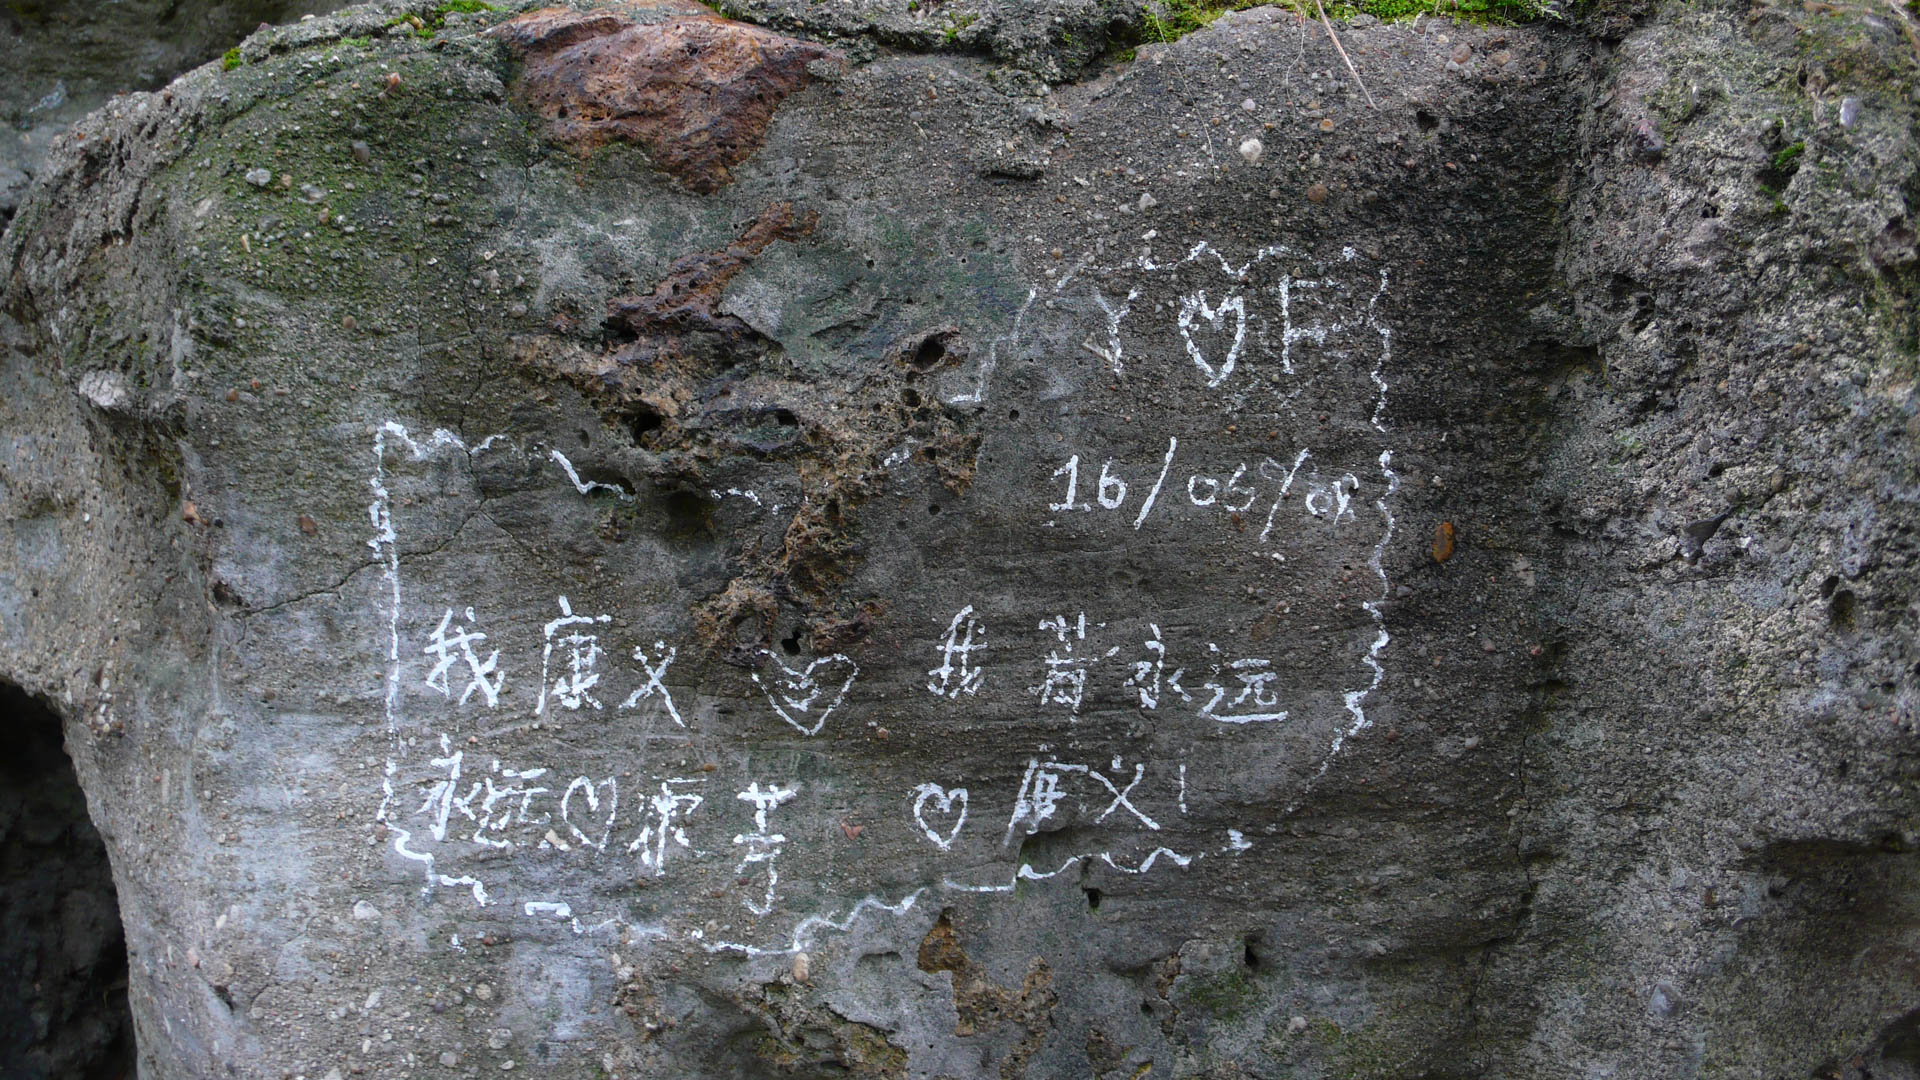 Y ♡ F
16/05/08
我康义 ♡ 我 永远
永远 ♡ 康芳 ♡ 康义!